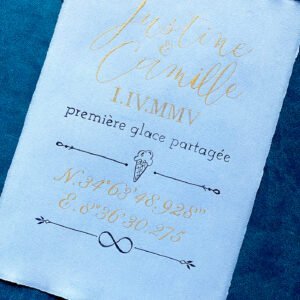 Justine
&
Camille
I.IV.MMV
première glace partagée
N.34°63'48.928'''
E.8"36'30.275